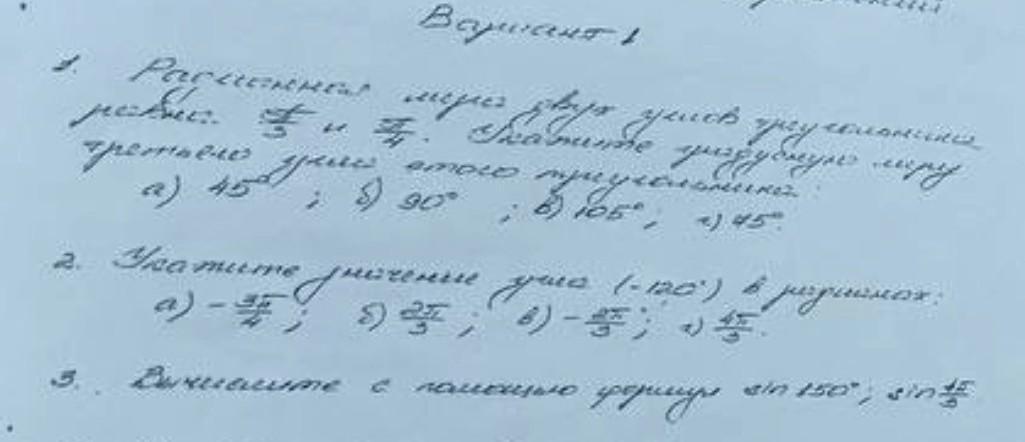 Вариант 1
1. Радианная мера двух углов треугольника
равна π/3 и π/4. Укажите градусную меру
третьего угла этого треугольника:
а) 45°; б) 90°; в) 105°; г) 75°.
2. Укажите значение угла (-120°) в радианах:
а) -3π/4; б) 2π/3; в) -2π/3; г) 4π/3.
3. Вычислите с помощью формул sin 150°; sin